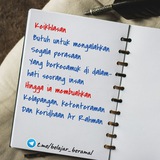 Keikhlasan
Butuh untuk mengalahkan
Segala perasaan
Yang berkecamuk di dalam-
hati seorang insan
Hingga ia membuahkan
Kelapangan, ketentraman
Dan keridhaan Ar Rahman
t.me/belajar_beramal